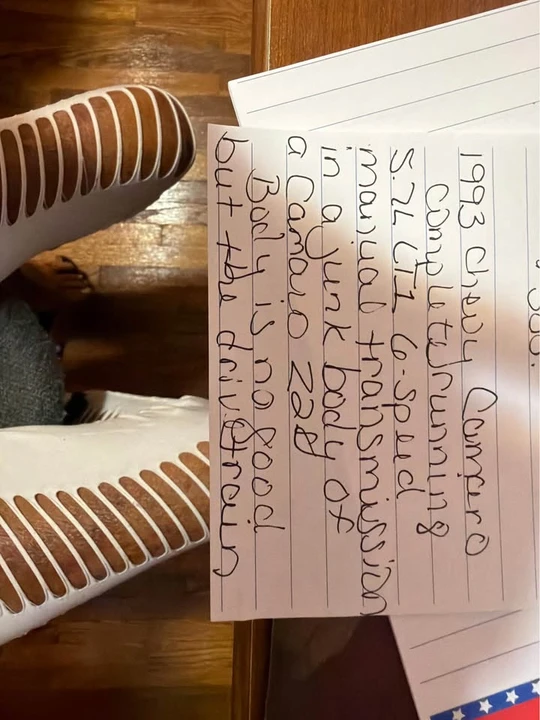 1993 Chevy Campero
Complety running
5.7L LT1 6-speed
manual transmission
in a junk body of
a Camaro Z28
Body is no good
but the drivetrain